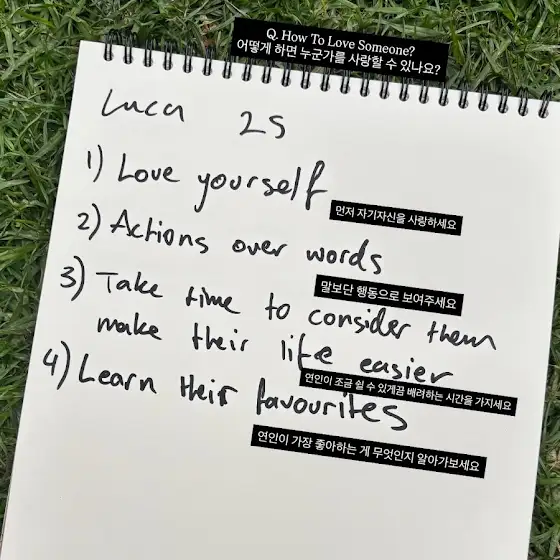 Q. How To Love Someone?
어떻게 하면 누군가를 사랑할 수 있나요?
Luca 25
1) Love yourself
먼저 자기자신을 사랑하세요
2) Actions over words
말보단 행동으로 보여주세요
3) Take time to consider them
make their life easier
연인이 조금 쉴 수 있게끔 배려하는 시간을 가지세요
4) Learn their favourites
연인이 가장 좋아하는 게 무엇인지 알아가보세요